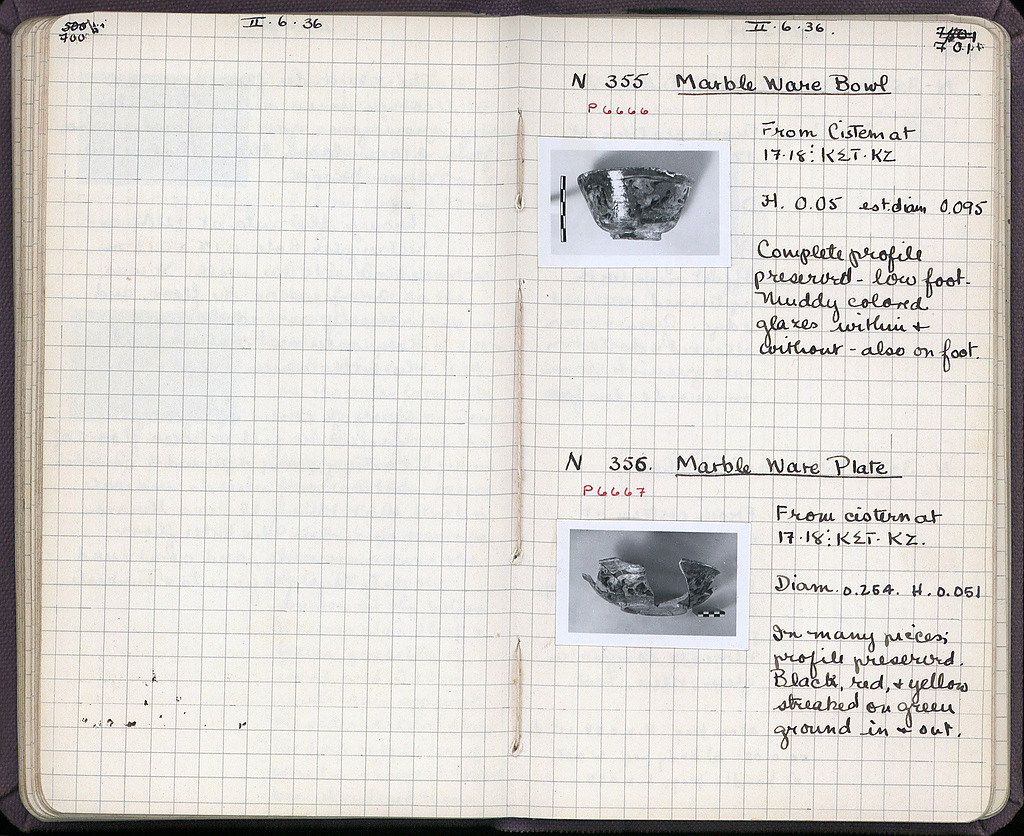 700
II · 6 · 36
II · 6 · 36.
701
N 355 Marble Ware Bowl
P 6666
From Cistern at
17·18 : ΚΣΤ·ΚΖ
H. 0.05 est. diam 0.095
Complete profile
preserved - low foot.
Muddy colored
glazes within +
without - also on foot.
N 356. Marble Ware Plate
P 6667
From cistern at
17·18 : ΚΣΤ· ΚΖ.
Diam. 0.264. H. 0.051
In many pieces;
profile preserved.
Black, red, + yellow
streaked on green
ground in + out.